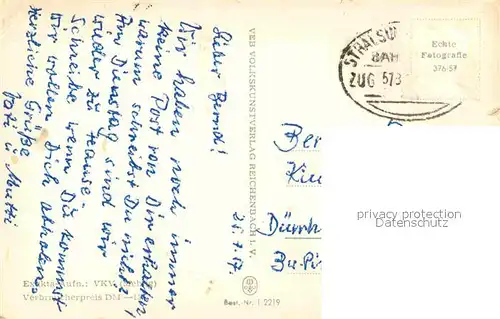 Lieber Bernd!
Wir haben noch immer
keine Post von Dir erhalten,
warum schreibst Du nicht?
Am Dienstag sind wir
wieder zu Hause.
Schreibe wenn Du kommst
wir wollen Dich abholen.
Herzliche Grüße
Vati u. Mutti
VEB VOLKSKUNSTVERLAG REICHENBACH I. V.
STRALSU
BAH
ZUG 573
Echte
Fotografie
376/57
25.7.57.
Ber
Kin
Dürrh
privacy protection
copyright protection
Aufn.: VKV
Verbraucherpreis DM
Best.-Nr. 1 2219